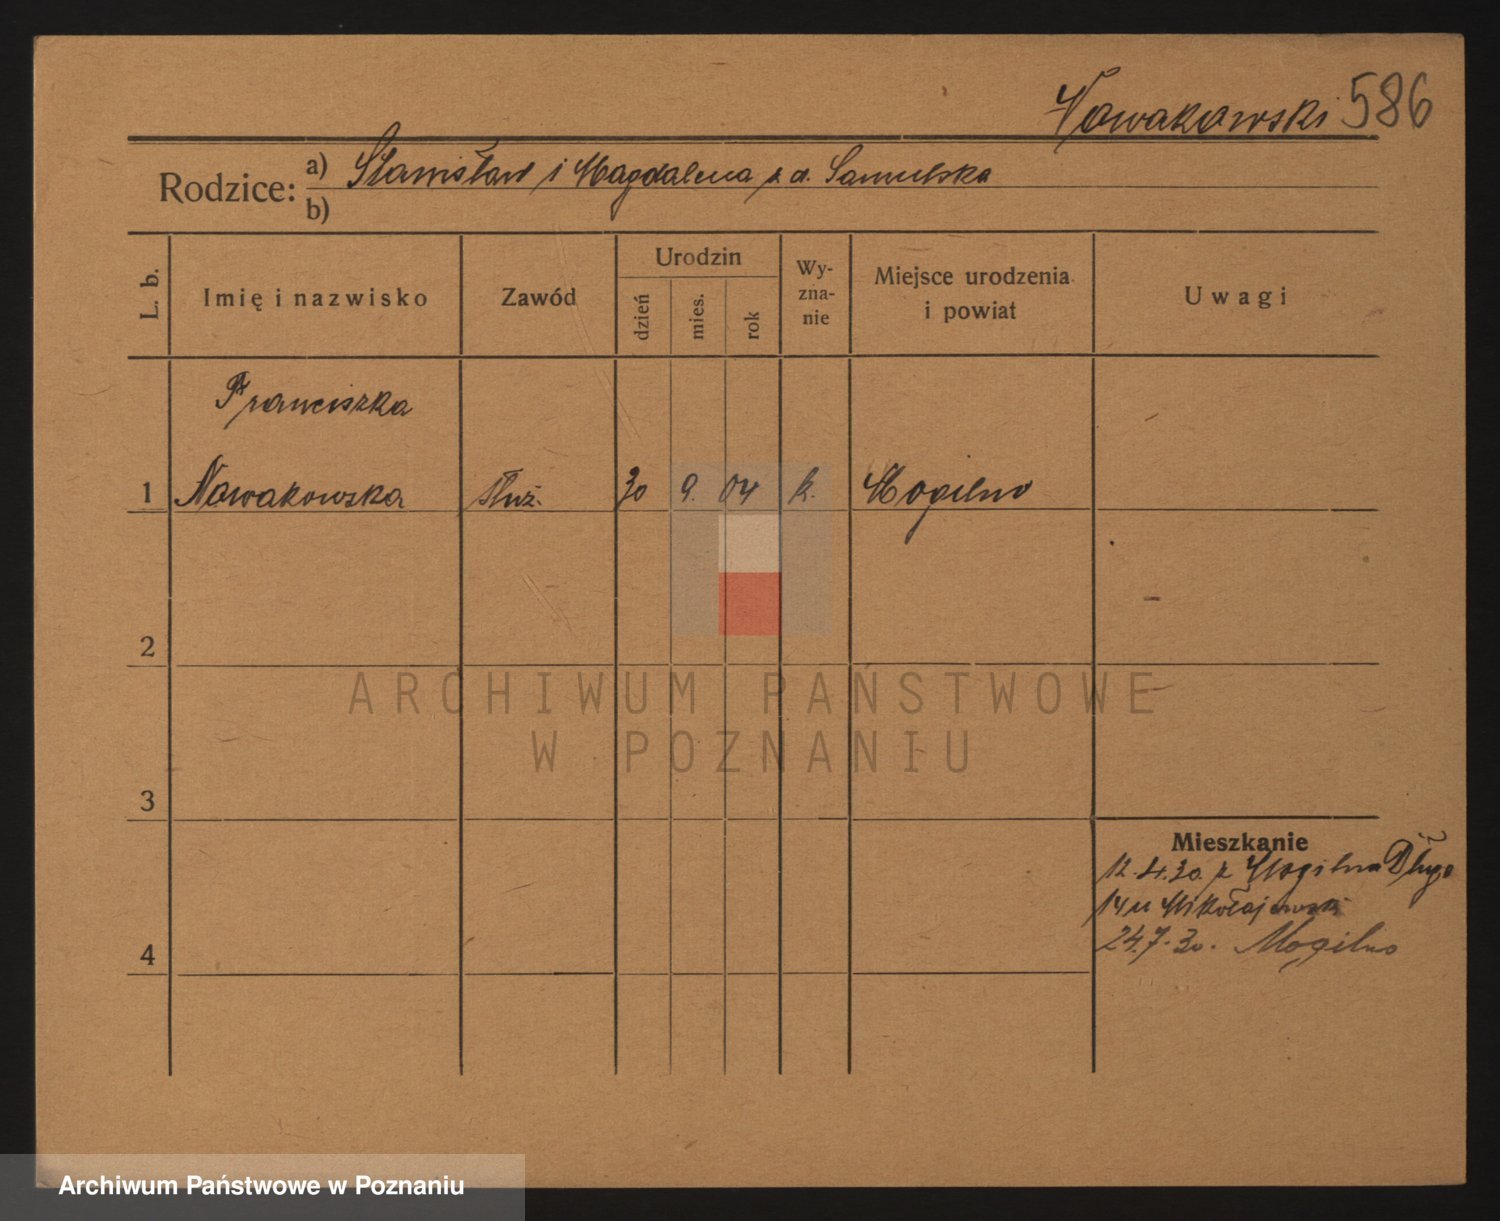 Nowakowski 586
Rodzice: a) Stanisław i Magdalena z d. Samulska
b)
L. b.
Imię i nazwisko
Zawód
Urodzin
dzień
mies.
rok
Wy-
zna-
nie
Miejsce urodzenia
i powiat
Uwagi
Franciszka
1 Nowakowska służ. 30 9. 04 k. Mogilno
2
ARCHIWUM PANSTWOWE
W POZNANIU
3
Mieszkanie
12.4.30. z Mogilna Długa
14 u Mikołajewski
4
24.7.30. Mogilno
Archiwum Państwowe w Poznaniu